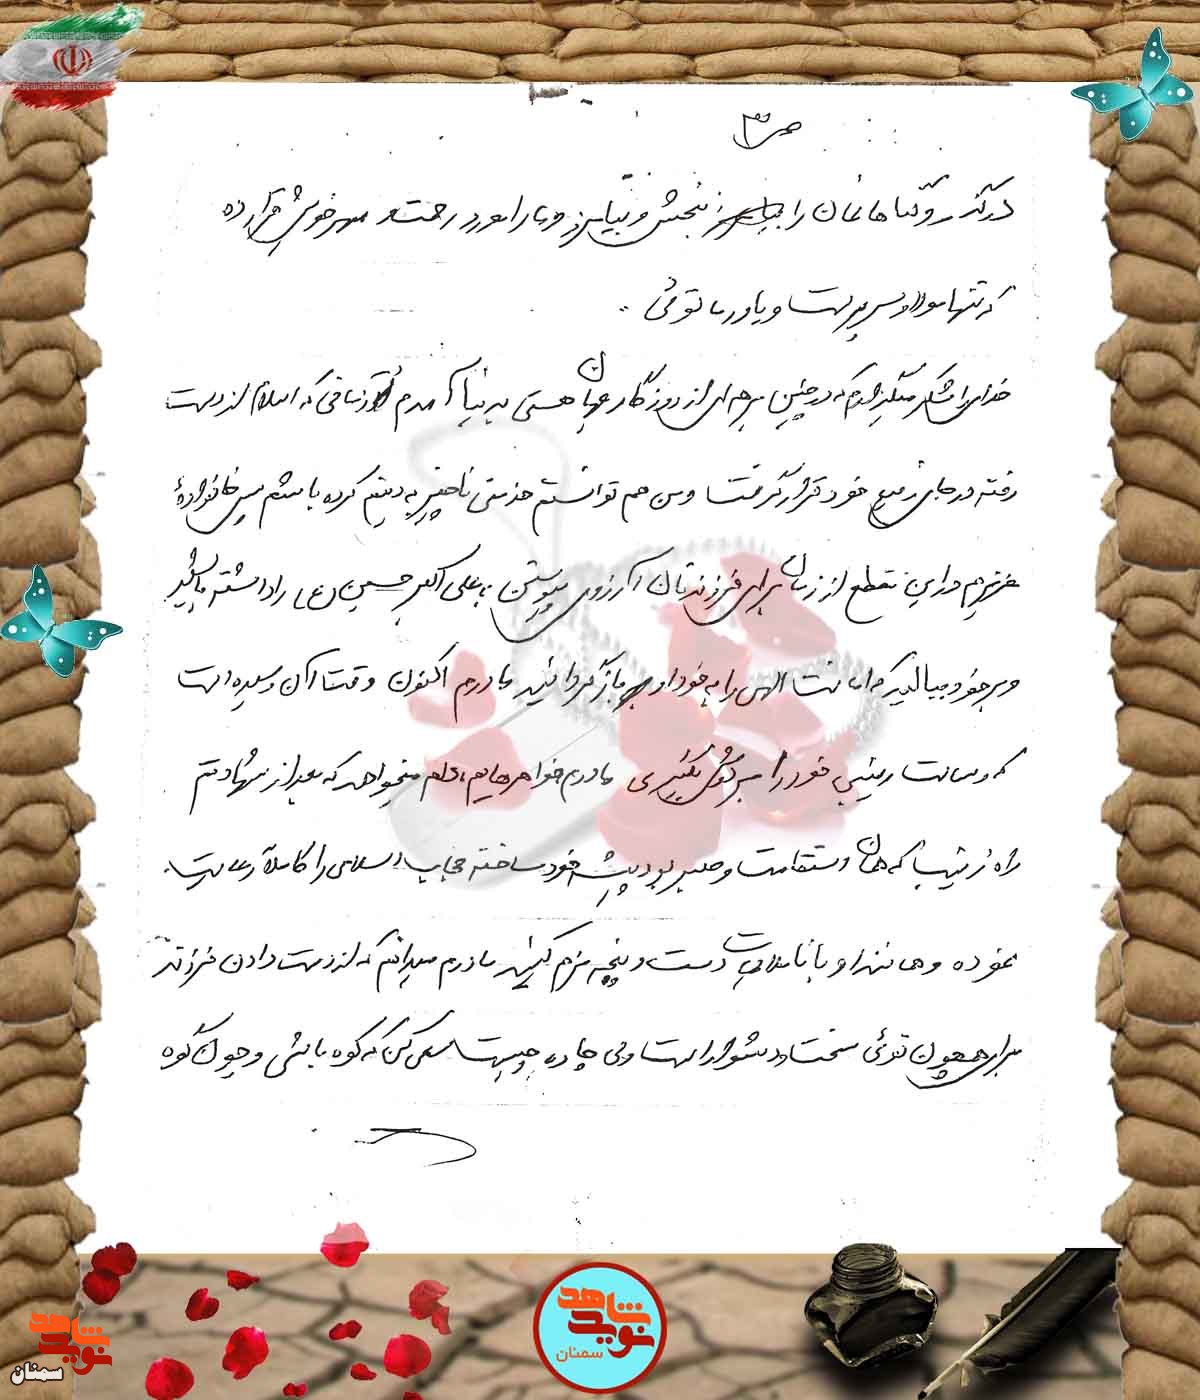 ص ۳
درگذر و گناهانمان را ببخش و بیامرز و ما را مورد رحمت و مهر خویش قرار ده
که تنها مولا و سرپرست و یاور ما توئی.
خدای را شکر میگذارم که در چنین برهه‌ای از روزگار جهان هستی به دنیا آمدم در زمانی که اسلام از دست
رفته در جای رفیع خود قرار گرفت و من هم توانستم خدمتی ناچیز به دینم کرده باشم پس خانواده
عزیزم در این مقطع از زمان برای فرزندتان آرزوی پیوستن به علی اکبر حسین (ع) را داشته باشید
و بر خود ببالید که امانت الهی را به خود او باز گردانید مادرم اکنون وقت آن رسیده است
که رسالت زینبی خود را بر دوش بگیری مادرم خواهرهایم از شما میخواهم که بعد از شهادتم
راه زینب که همان استقامت و صبر بود پیشه خود ساخته حجاب اسلامی را کاملاً رعایت
نموده و همانند او با ناملایمات دست و پنجه نرم کنید مادرم میدانم که از دست دادن فرزند
برای همچون توئی سخت و دشوار است ولی چاره چیست سعی کن که کوه باشی و چون کوه
نوید شاهد
سمنان
نوید شاهد
سمنان